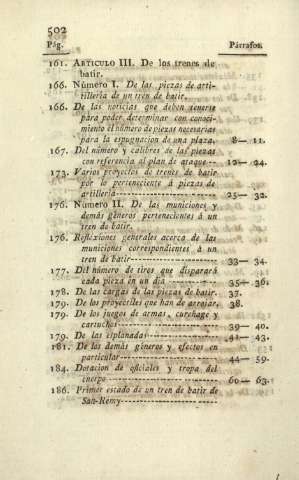 502
Pág. Párrafos.
161. ARTICULO III. De los trenes de
batir.
166. Número I. De las piezas de arti-
tillería de un tren de batir.
166. De las noticias que deben tenerse
para poder determinar con conoci-
miento el número de piezas necesarias
para la expugnacion de una plaza. 8— 11.
167. Del número y calibres de las piezas
con referencia al plan de ataque-- 12— 24.
173. Varios proyectos de trenes de batir
por lo perteneciente á piezas de
artillería------------------ 25— 32.
176. Número II. De las municiones y
demás géneros pertenecientes á un
tren de batir.
176. Reflexîones generales acerca de las
municiones correspondientes á un
tren de batir---------------- 33— 34.
177. Del número de tiros que disparará
cada pieza en un dia ---------- 35— 36.
178. De las cargas de las piezas de batir. 37.
179. De los proyectiles que han de arrojar. 38.
179. De los juegos de armas, cureñage y
cartuchos------------------ 39— 40.
179. De las esplanadas------------ 41— 43.
181. De los demás géneros y efectos en
particular------------------ 44— 59.
184. Dotacion de oficiales y tropa del
cuerpo-------------------- 60— 63.
186. Primer estado de un tren de batir de
San-Remy------------------